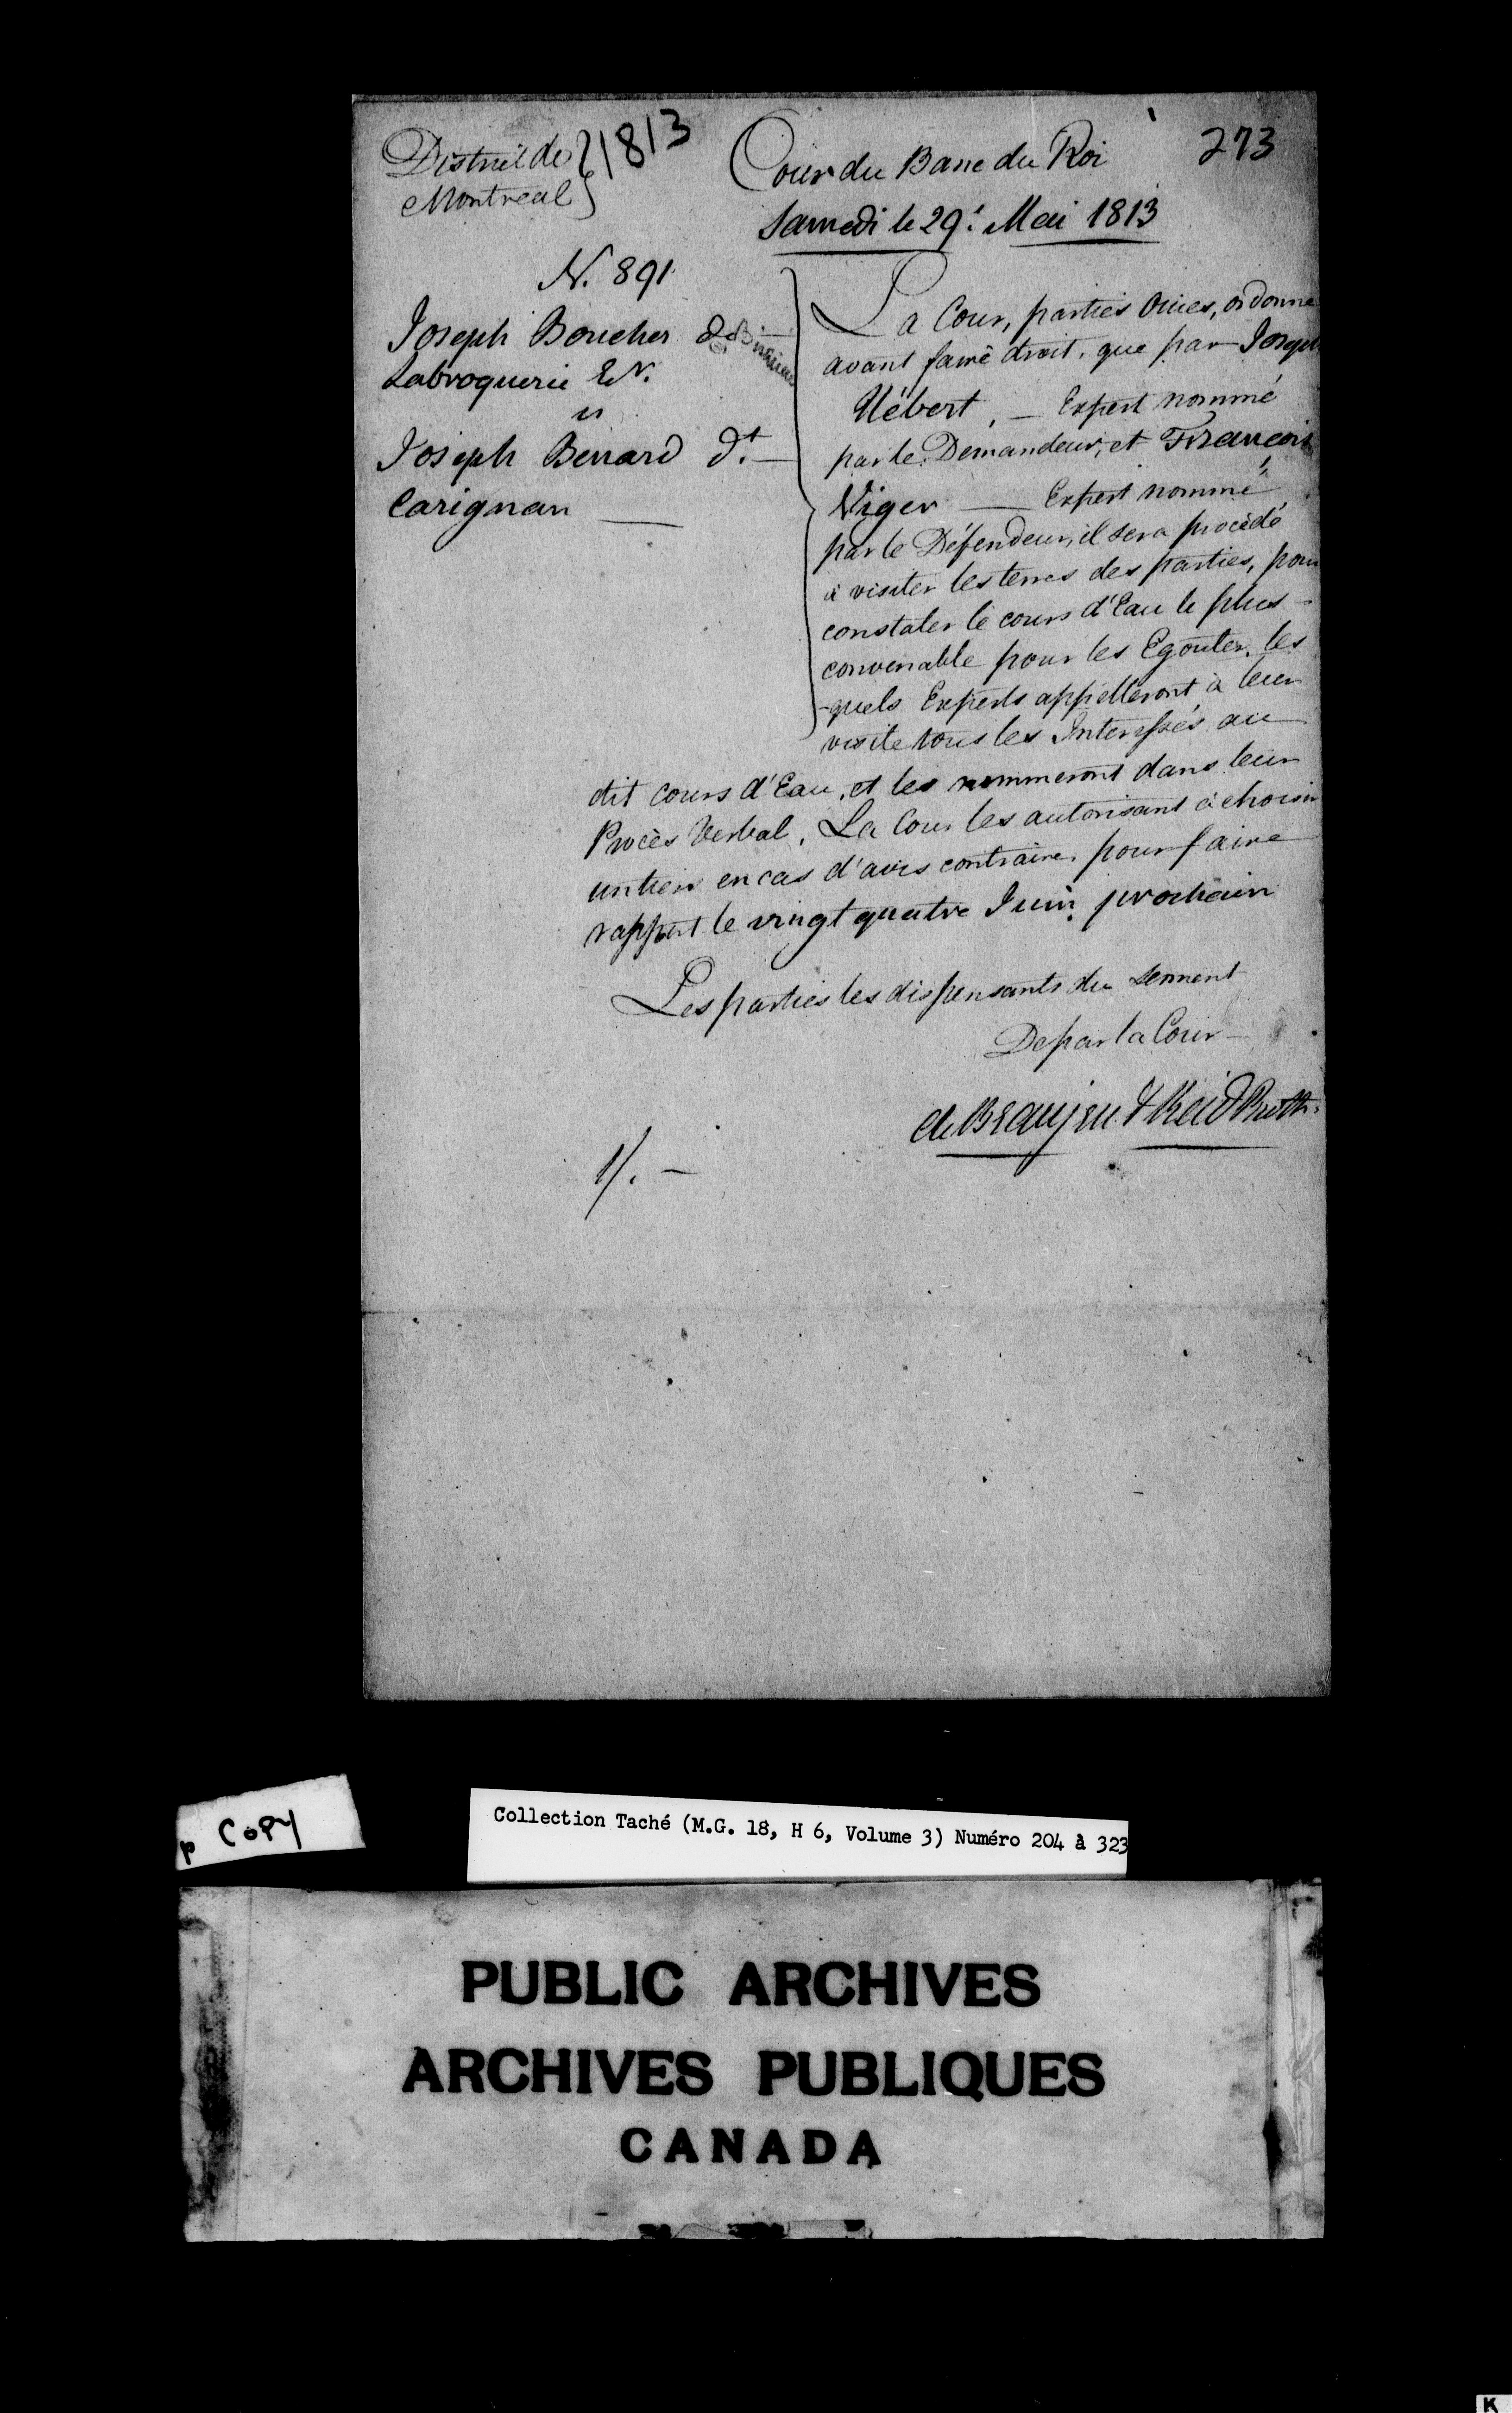 District de } 1813
Montreal }
Cour du Banc du Roi
273
Samedi le 29.e Mai 1813
N. 891
Joseph Boucher de
Labroquerie Er.
vs
Joseph Benard dt. —
Carignan —
La Cour, parties Ouies, ordonne
avant faire droit, que par Joseph
Hébert, — Expert nommé
par le Demandeur, et François
Viger — Expert nommé
par le Défendeur, il sera procédé
à visiter les terres des parties, pour
constater le cours d'Eau le plus -
convenable pour les Egouter, les
-quels Experts appelleront à leur
visite tous les Interessés au
dit cours d'Eau, et les nommeront dans leur
Procès Verbal, La Cour les autorisant à choisir
un tiers en cas d'avis contraire, pour faire
rapport le vingt quatre Juin prochain
Les parties les dispensants du serment
De par la Cour —
de Beaujeu & Reid Proth.
1/. —
COPY
Collection Taché (M.G. 18, H 6, Volume 3) Numéro 204 à 323
PUBLIC ARCHIVES
ARCHIVES PUBLIQUES
CANADA
K